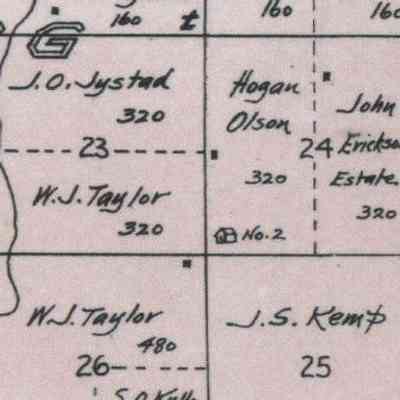 160
t
160
160
G
J.O. Jystad
320
23
W.J. Taylor
320
Hogan
Olson
320
No. 2
24
John
Estate
320
W.J. Taylor
480
26
J.S. Kemp
25